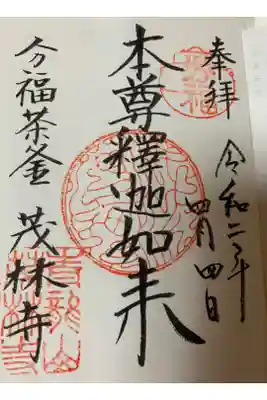 奉拝
令和二年
四月四日
本尊釋迦如来
分福茶釜
茂林寺
分福
青龍山
茂林寺